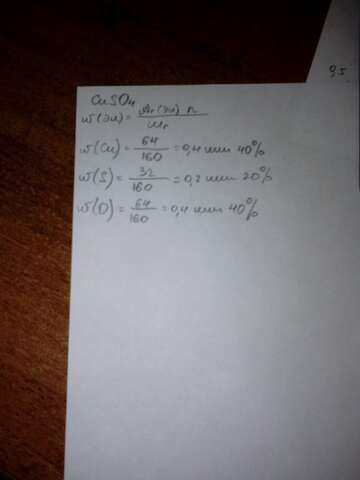 0,5
CuSO4
w(эл) = Ar(эл) n / Mr
w(Cu) = 64 / 160 = 0,4 или 40%
w(S) = 32 / 160 = 0,2 или 20%
w(O) = 64 / 160 = 0,4 или 40%